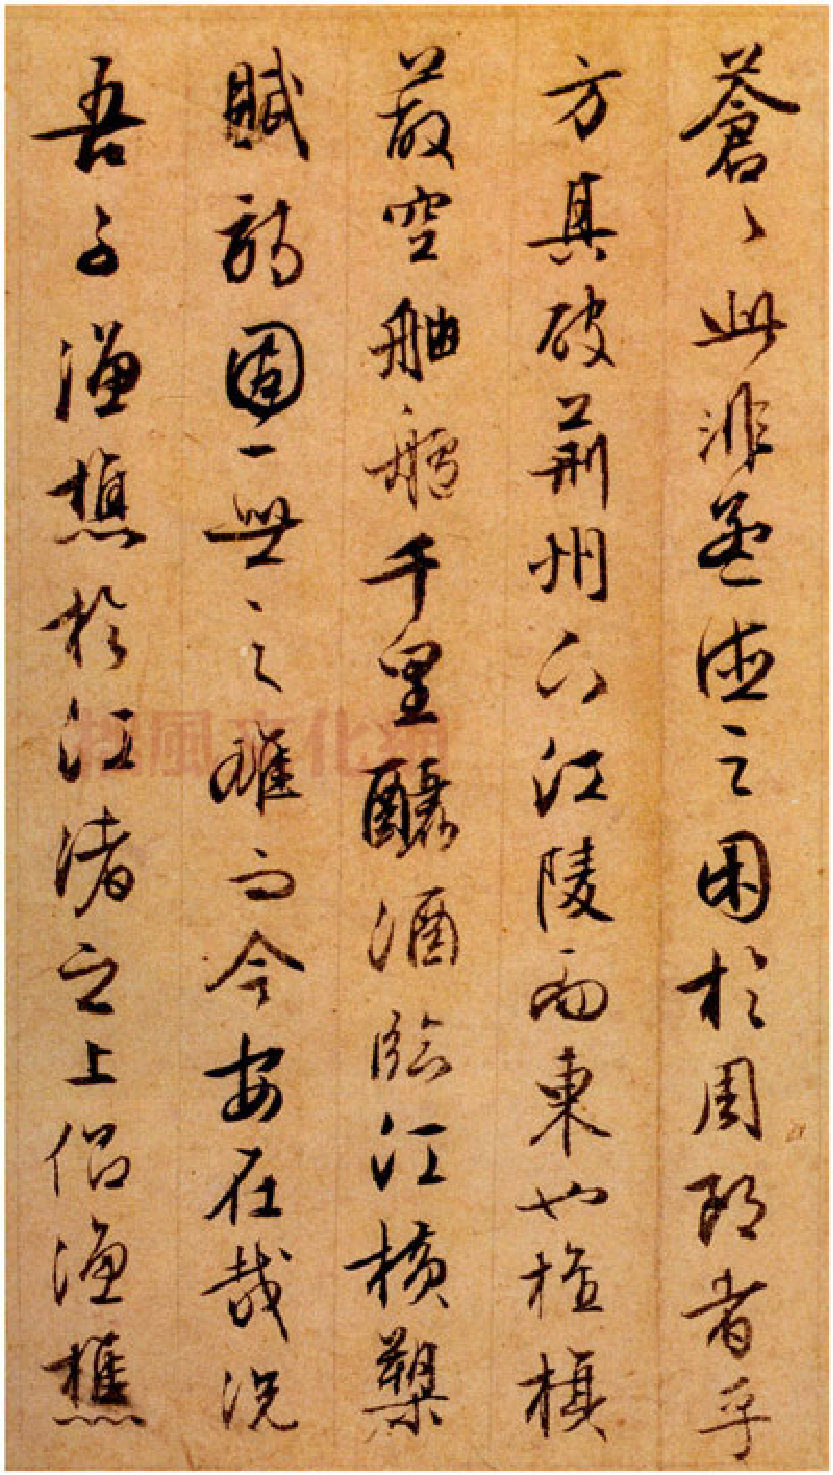 蒼〻此非孟德之困於周郎者乎
方其破荊州下江陵而東也旌旗
蔽空舳艫千里釃酒臨江橫槊
賦詩固一世之雄而今安在哉況
吾子漁樵於江渚之上侶漁樵